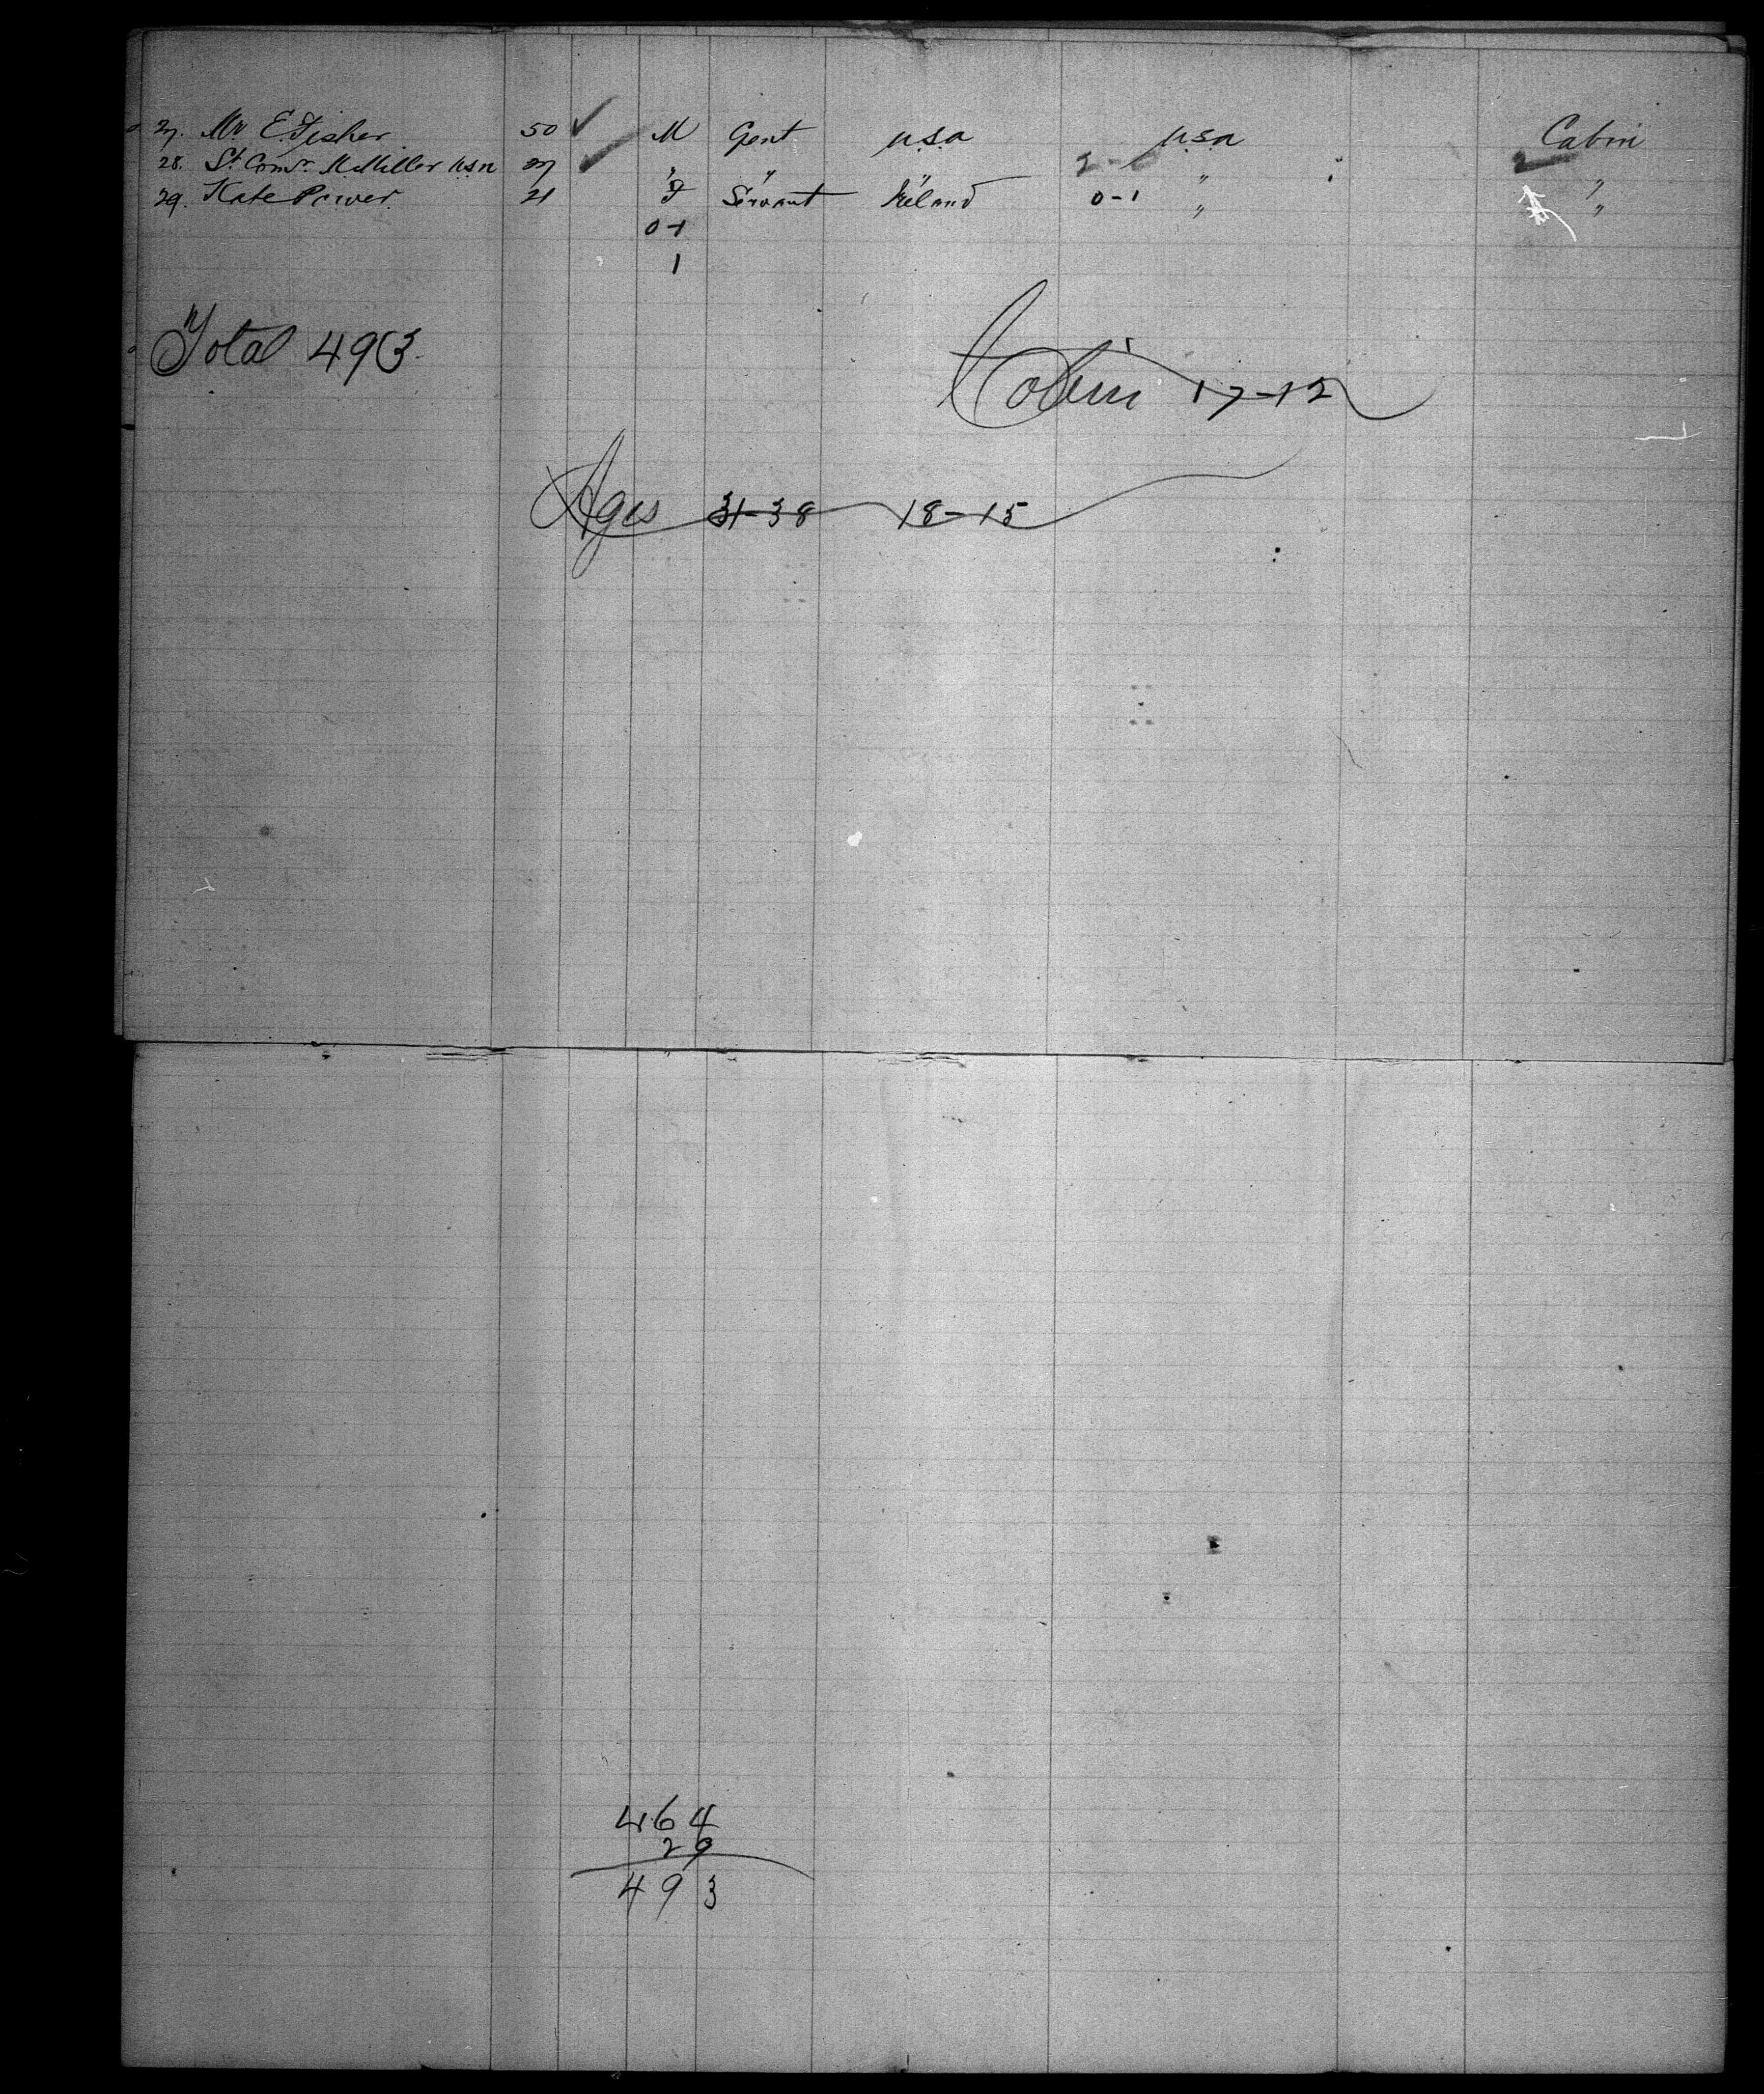 27. Mr E. Fisher 50 ✓ M Gent U.S.A U.S.A Cabin
28. Lt. Comdr. M. Miller U.S.N 27 ✓ " " " 2- " 2 "
29. Kate Power 21 F Servant Ireland 0-1 " "
0-1
1
Total 493
Cabin 17-12
Ages 31-38 18-15
464
29
493